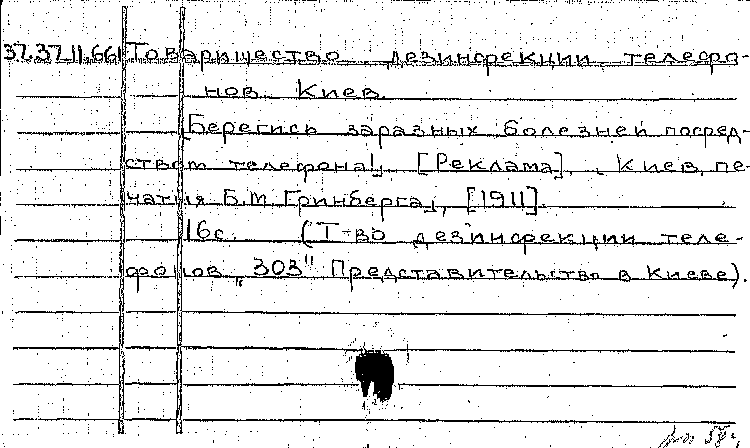 37.37.11.661 Товарищество дезинфекции телефо-
нов. Киев.
Берегись заразных болезней посред-
ством телефона!, [Реклама]. Киев, пе-
чатня Б.М. Гринберга, [1911].
16с. (Т-во дезинфекции теле-
фонов „303" Представительство в Киеве).